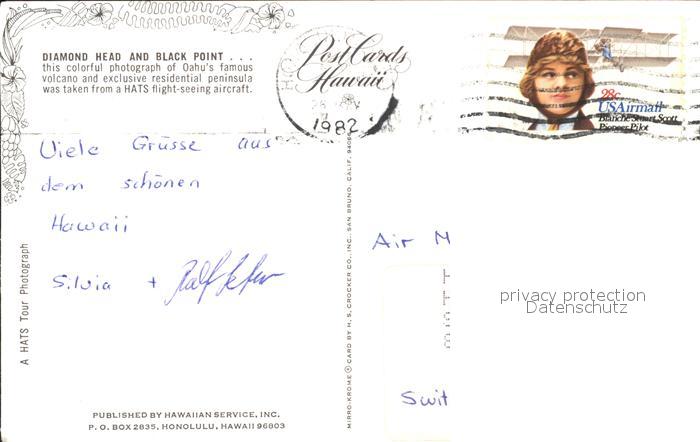 DIAMOND HEAD AND BLACK POINT . . .
this colorful photograph of Oahu's famous
volcano and exclusive residential peninsula
was taken from a HATS flight-seeing aircraft.
Post Cards
Hawaii
1982
28c
USAirmail
Blanche Stuart Scott
Pioneer Pilot
Viele Grüsse aus
dem schönen
Hawaii
Silvia +
A HATS Tour Photograph
MIRRO-KROME® CARD BY H. S. CROCKER CO., INC., SAN BRUNO, CALIF.
Air M
privacy protection
Datenschutz
Swit
PUBLISHED BY HAWAIIAN SERVICE, INC.
P. O. BOX 2835, HONOLULU, HAWAII 96803